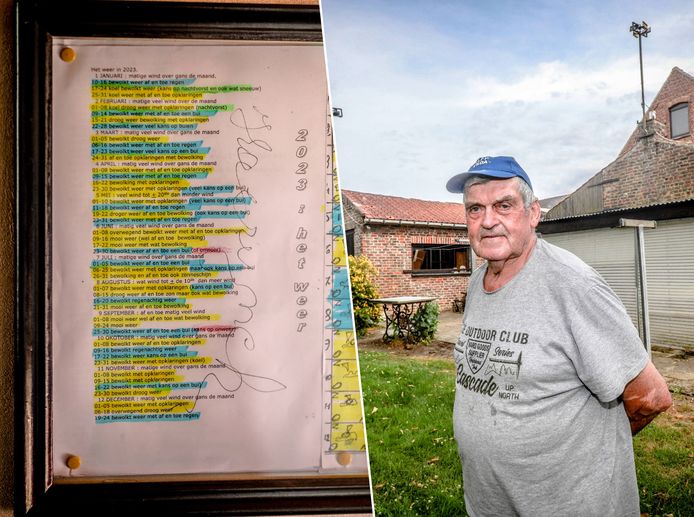 Het weer in 2023.
1 JANUARI : matige wind over gans de maand.
10-16 bewolkt weer af en toe regen
17-24 koel bewolkt weer (kans op nachtvorst en ook wat sneeuw)
25-31 koel weer met af en toe opklaringen
2 FEBRUARI : matige veel wind over de maand
01-08 koel droog weer met opklaringen (nachtvorst)
09-14 bewolkt weer met af en toe een bui
15-21 droog weer bewolking met opklaringen
22-28 bewolkt weer veel kans op buien
3 MAART : matig veel wind over gans de maand
01-05 bewolkt droog weer
06-16 bewolkt weer met af en toe regen
17-23 bewolkt weer veel kans op een bui
24-31 af en toe bewolking met opklaringen
4 APRIL : matig veel wind over gans de maand
01-08 bewolkt weer met opklaringen
09-15 bewolkt weer met af en toe regen
16-22 bewolking met opklaringen
23-30 bewolkt weer met opklaringen (veel kans op een bui)
5 MEI : veel wind tot ± 20ste dan minder wind
01-10 bewolkt weer met opklaringen (veel kans op een bui)
11-18 bewolkt weer met af en toe regen
19-22 droger weer af en toe bewolking (ook kans op een bui)
23-31 bewolkt weer met af en toe opklaringen
6 JUNI : matig veel wind over gans de maand
01-08 overwegend bewolkt weer met af en toe opklaringen
09-16 mooi weer (wel af en toe bewolking)
17-22 mooi weer met wat bewolking
23-30 bewolkt weer af en toe een bui (of onweer)
7 JULI : matige wind over gans de maand
01-05 bewolkt weer met af en toe een bui
06-25 bewolkt weer met opklaringen maar ook kans op een bui
26-31 bewolking af en toe ook zonneschijn
8 AUGUSTUS : wat wind tot ± 10de dan meer wind
01-07 bewolkt weer met opklaringen (kans op een bui)
08-15 droog weer af en toe een maar ook wat bewolking
16-20 bewolkt regenachtig weer
21-31 mooi weer af en toe bewolking
9 SEPTEMBER : af en toe matig veel wind
01-08 mooi weer wel af en toe wat bewolking
09-24 mooi weer
25-30 bewolkt weer met af en toe een bui (kans op onweer)
10 OKTOBER : matig veel wind over gans de maand
01-08 bewolkt weer met opklaringen
09-16 bewolkt regenachtig weer
17-22 bewolkt weer kans op een bui
22-31 bewolkt weer met opklaringen (koel)
11 NOVEMBER : matig veel wind over gans de maand
01-08 bewolkt weer met opklaringen
09-15 bewolkt met opklaringen
16-22 bewolkt weer met kans op een bui
23-30 bewolkt droog weer
12 DECEMBER : matig veel wind over gans de maand
01-05 bewolkt weer met opklaringen
06-18 overwegend droog weer
19-24 bewolkt weer met af en toe regen
2023 : het weer
OUTDOOR CLUB
Series
Cascade
UP
NORTH